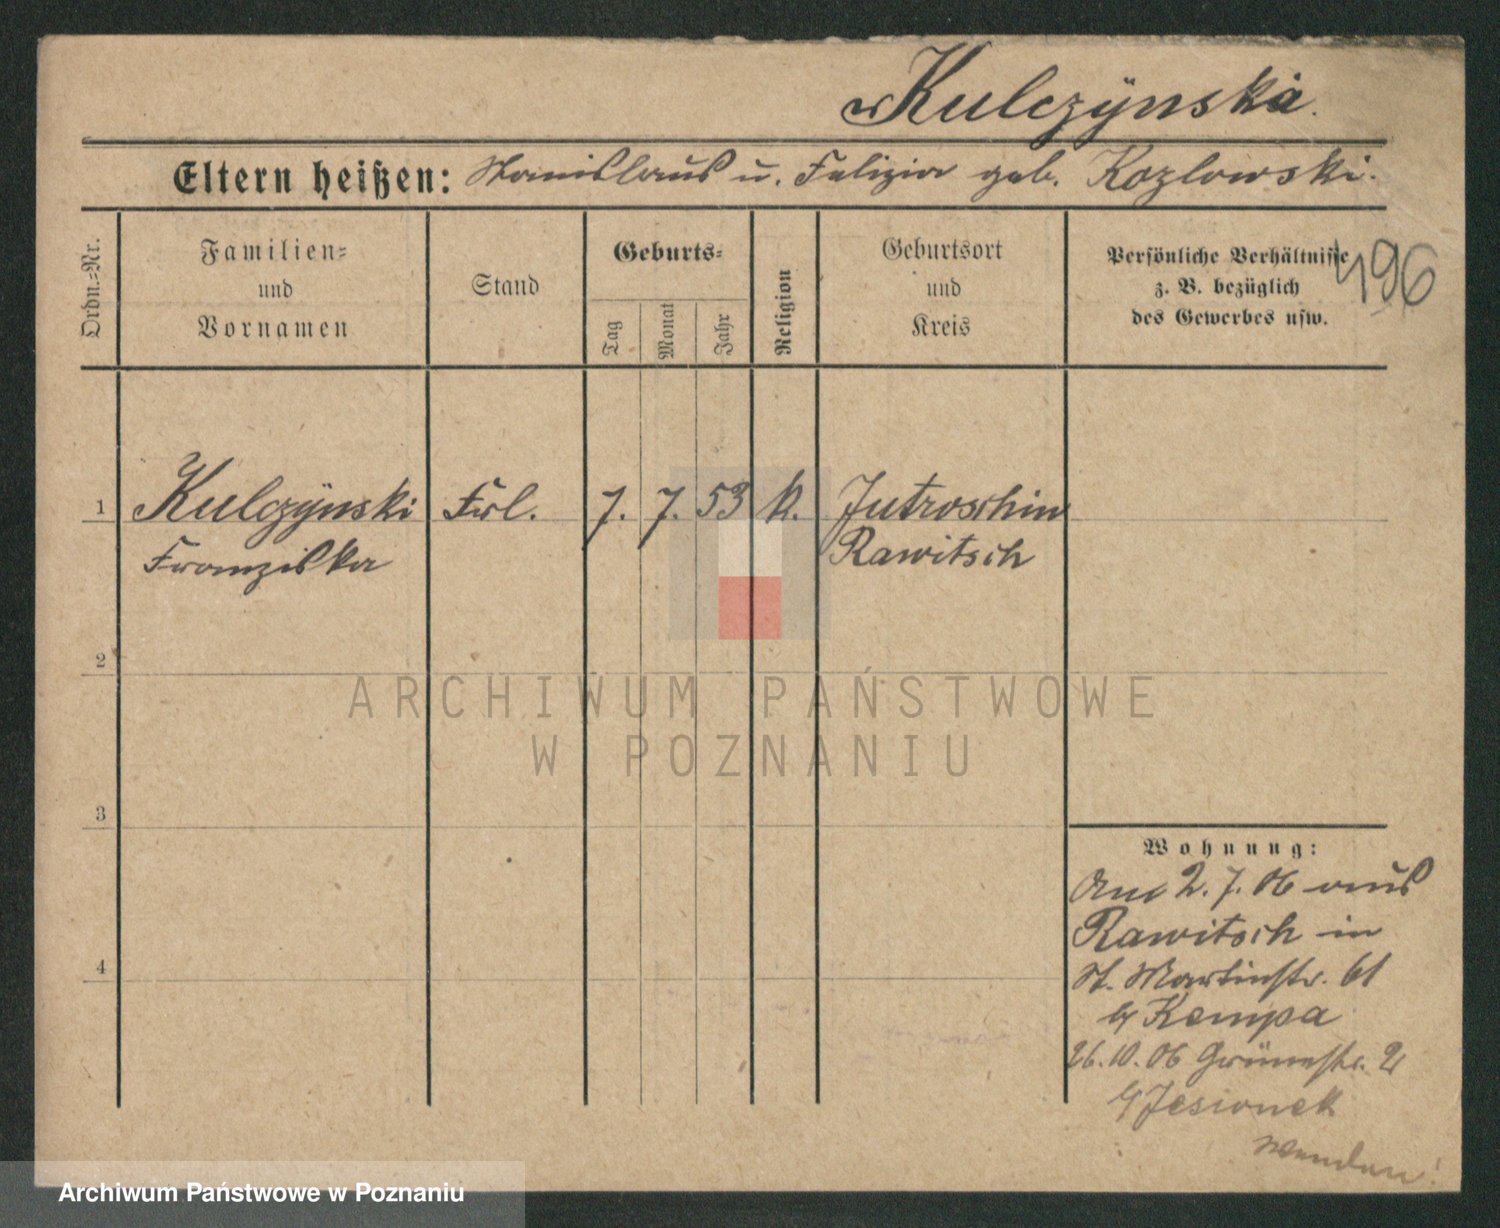 Kulczÿnska.
Eltern heißen: Stanislaus u. Felizia geb. Kozlowski.
Ordn.=Nr.
Familien=
und
Vornamen
Stand
Geburts=
Tag
Monat
Jahr
Religion
Geburtsort
und
Kreis
Persönliche Verhältnisse
z. B. bezüglich
des Gewerbes usw.
496
1 Kulczÿnski Frl. 7. 7. 53 k. Jutroschin
Franziska Rawitsch
2
ARCHIWUM PAŃSTWOWE
W POZNANIU
3
Wohnung:
Am 2.7.06 aus
Rawitsch in
4
St. Martinstr. 61
b/ Kempa
26.10.06 Grünestr. 2
b/ Jesionek
Wenden!
Archiwum Państwowe w Poznaniu